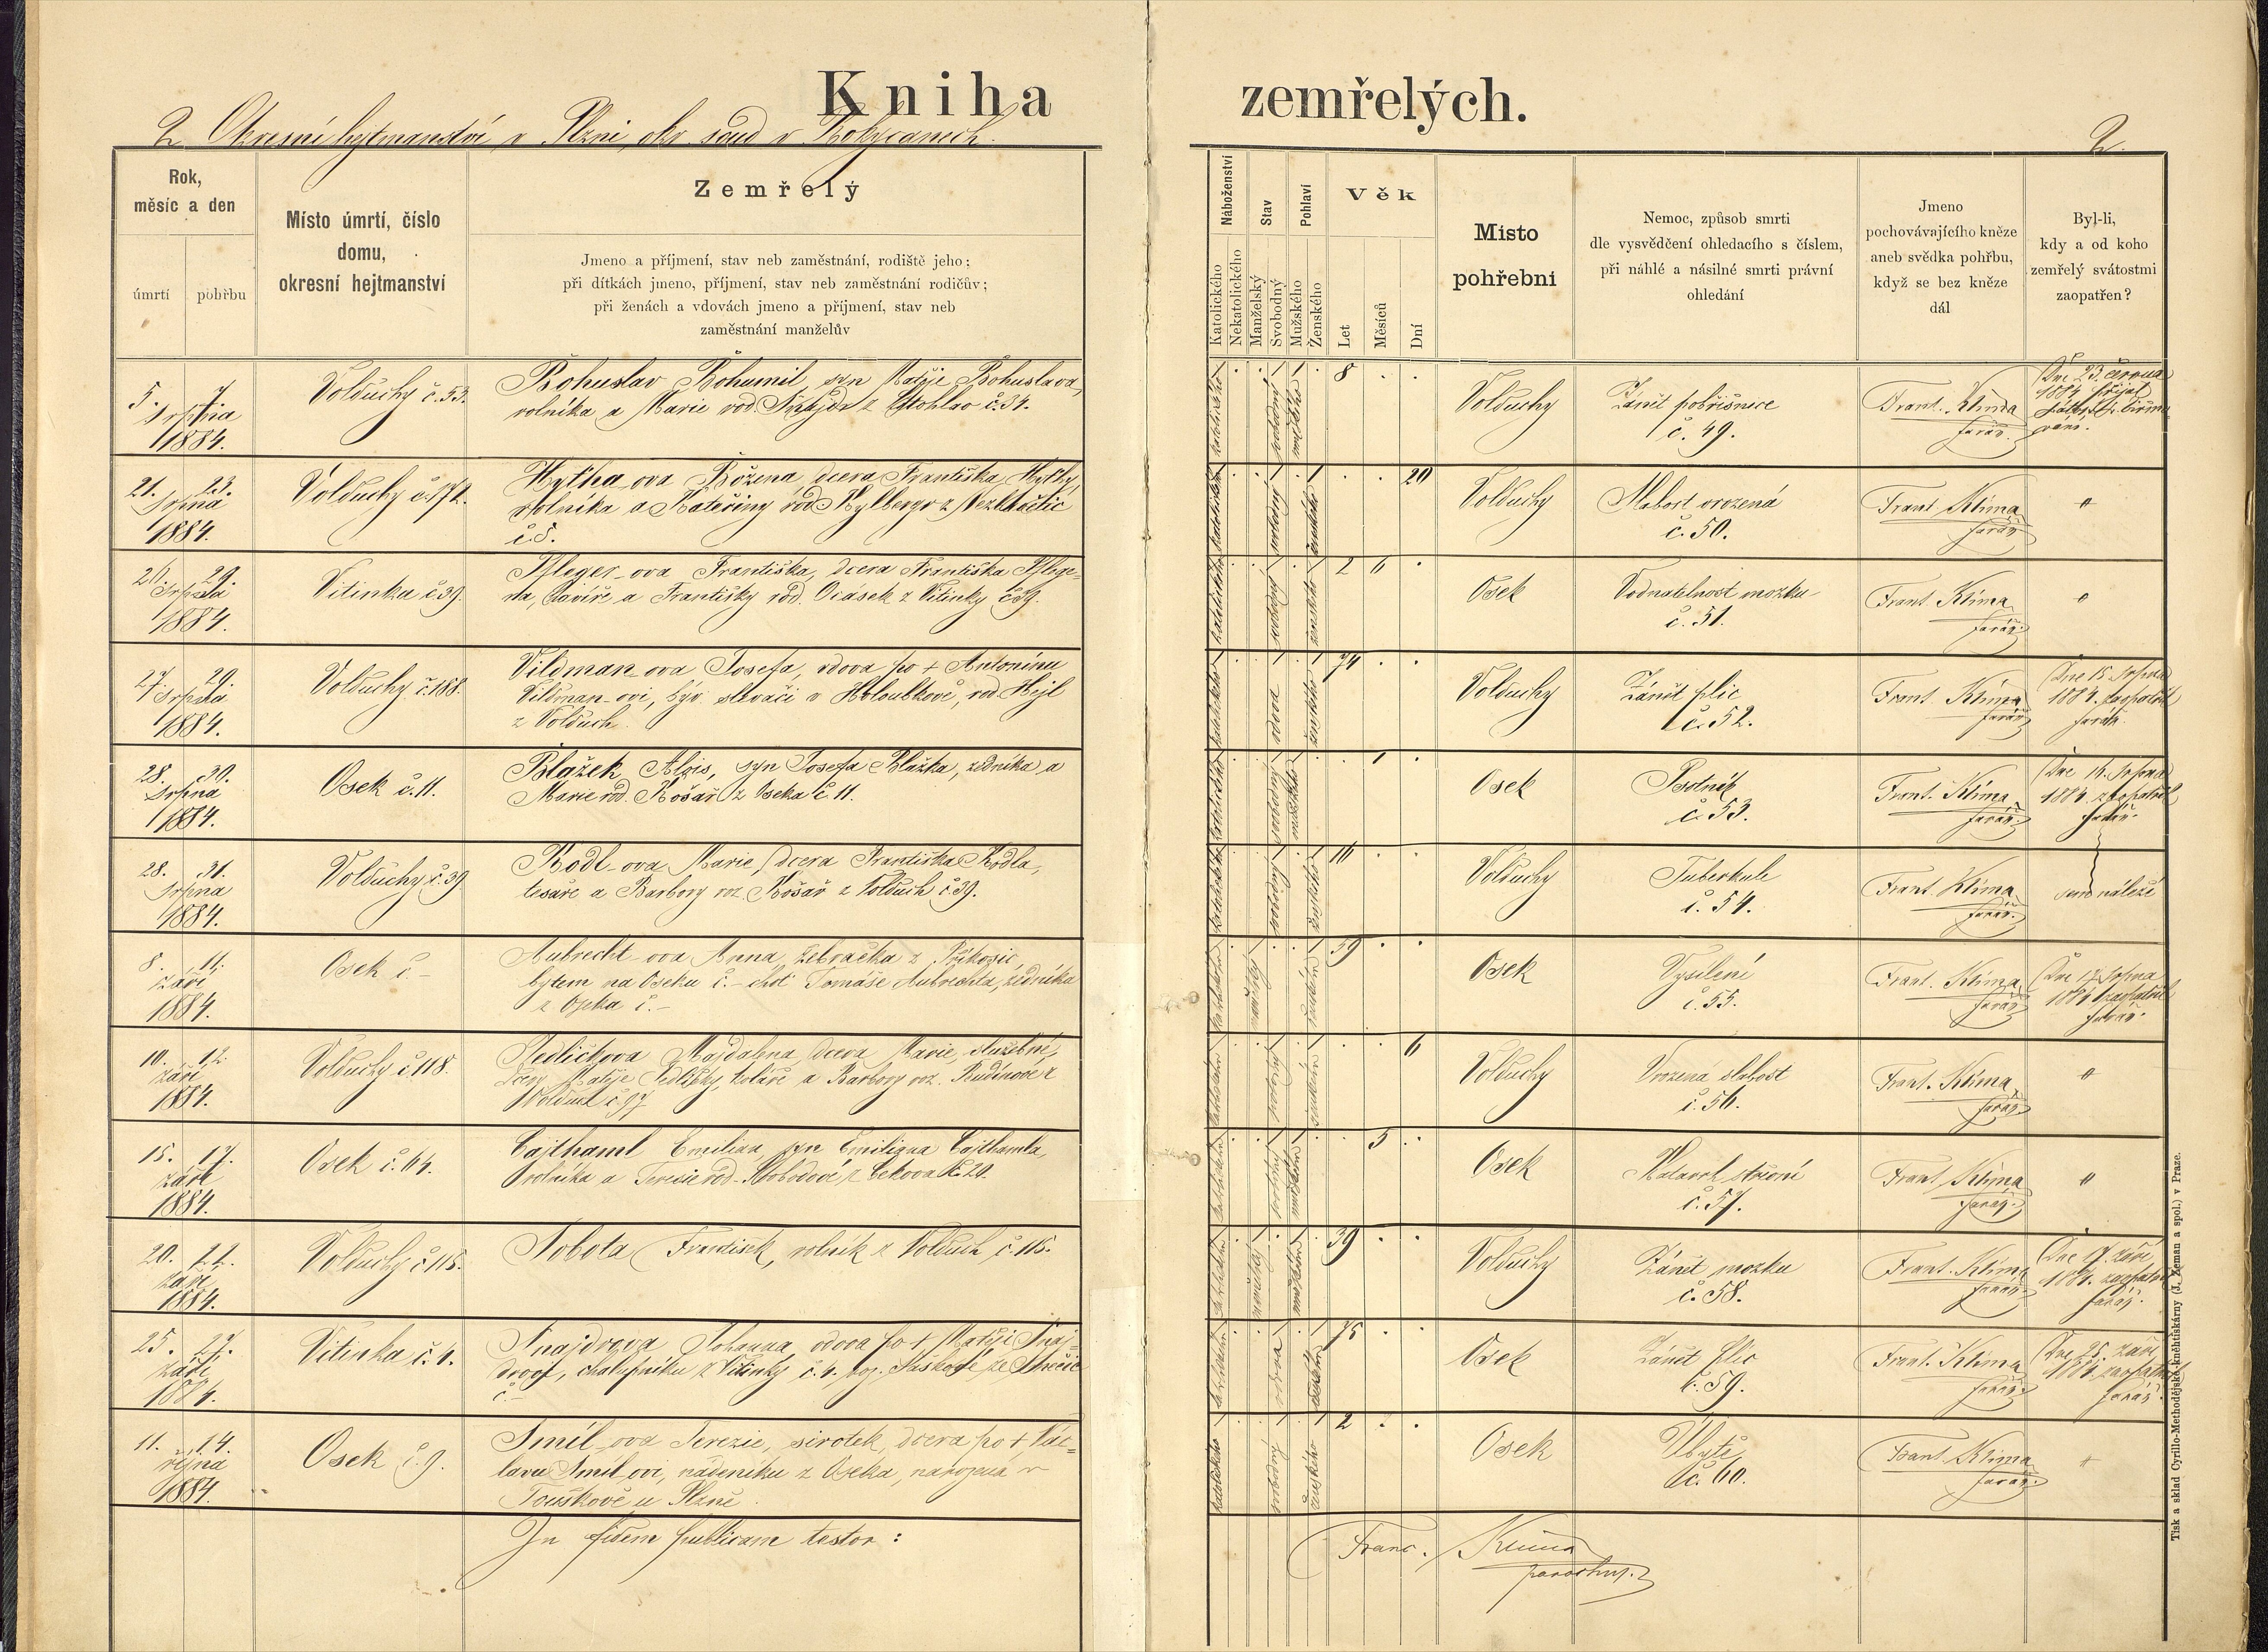 Kniha zemřelých.
2 Okresní hejtmanství v Plzni, okr. soud v Rokycanech.
2
Rok,
měsíc a den
úmrtí
pohřbu
Místo úmrtí, číslo
domu,
okresní hejtmanství
Zemřelý
Jmeno a příjmení, stav neb zaměstnání, rodiště jeho;
při dítkách jmeno, příjmení, stav neb zaměstnání rodičův;
při ženách a vdovách jmeno a příjmení, stav neb
zaměstnání manželův
Náboženství
Katolického
Nekatolického
Stav
Manželský
Svobodný
Pohlaví
Mužského
Ženského
Věk
Let
Měsíců
Dní
Místo
pohřební
Nemoc, způsob smrti
dle vysvědčení ohledacího s číslem,
při náhlé a násilné smrti právní
ohledání
Jmeno
pochovávajícího kněze
aneb svědka pohřbu,
když se bez kněze
dál
Byl-li,
kdy a od koho
zemřelý svátostmi
zaopatřen?
5. 7.
srpna
1884.
Volduchy č. 53.
Bohuslav Bohumil, syn Matěje Bohuslava,
rolníka a Marie rod. č. 34.
katolického svobodný mužského
8
Volduchy
Zánět pobřišnice
č. 49.
Frant. Klima
farář.
Dne 23. června
1884 přijal
21. 23.
srpna
1884.
Volduchy č. 172.
Hytha-ova Božena, dcera Františka Hythy,
rolníka a Kateřiny rod. z
č. 5.
katolického svobodný ženského
20
Volduchy
Slabost vrozená
č. 50.
Frant. Klima
farář.
"
29.
srpna
1884.
Vitinka č. 39.
Pfleger-ova Františka, dcera Františka Pflege-
ra, a Františky rod. Ocásek z Vitinky č. 39.
katolického svobodný ženského
2 6
Osek
Vodnatelnost mozku
č. 51.
Frant. Klima
farář.
"
27. 29.
srpna
1884.
Volduchy č. 188.
Vildman-ova Josefa, vdova po + Antonínu
Vildman-ovi, býv. slevači v Holoubkově, rod. Hejl
z Volduch.
katolického vdova ženského
74
Volduchy
Zánět plic
č. 52.
Frant. Klima
farář.
Dne 15. srpna
1884. zaopatřil
farář.
28. 30.
srpna
1884.
Osek č. 11.
Blažek Alois, syn Josefa Blažka, zedníka a
Marie rod. Košař z Oseka č. 11.
katolického svobodný mužského
1
Osek
Psotník
č. 53.
Frant. Klima
farář.
Dne 16. srpna
1884. zaopatřil
farář.
28. 31.
srpna
1884.
Volduchy č. 39
Rödl-ova Marie, dcera Františka Rödla,
tesaře a Barbory roz. Košař z Volduch č. 39.
katolického svobodný ženského
16
Volduchy
Tuberkule
č. 54.
Frant. Klima
farář.
sem náleží
8. 11.
září
1884.
Osek č. -
Aubrecht-ova Anna, žebračka z Příkosic,
bytem na Oseku č. - choť Tomáše Aubrechta, zedníka
z Oseka č. -
katolického manželský ženského
59
Osek
Vysílení
č. 55.
Frant. Klima
farář.
Dne 17. srpna
1884 zaopatřil
farář.
10. 12.
září
1884.
Volduchy č. 118.
Sedličkova Majdalena, dcera Marie, služebné,
dcery Matěje Sedličky, koláře a Barbory roz. Budínové z
Volduch č. 97
katolického svobodný ženského
6
Volduchy
Vrozená slabost
č. 56.
Frant. Klima
farář.
"
15. 17.
září
1884.
Osek č. 64.
Cajthaml Emilian, syn Emiliana Cajthamla
rolníka a Teresie rod. Svobodové z Cekova č. 20.
katolického svobodný mužského
5
Osek
Katarrh střevní
č. 57.
Frant. Klima
farář.
"
20. 22.
září
1884.
Volduchy č. 115.
Sobota František, rolník z Volduch č. 115.
katolického manželský mužského
39
Volduchy
Zánět mozku
č. 58.
Frant. Klima
farář.
Dne 17. září
1884. zaopatřil
farář.
25. 27.
září
1884.
Vitinka č. 4.
Šnajdrova Johanna, vdova po + Matěji Šnaj-
drovi, chalupníku z Vitinky č. 4. ze
č. -
katolického vdova ženského
75
Osek
Zánět plic
č. 59.
Frant. Klima
farář.
Dne 25. září
1884. zaopatřil
farář.
11. 14.
října
1884.
Osek č. 9.
Šmíl-ova Terezie, sirotek, dcera po + Vác-
lavu Šmíl-ovi, nádeníku z Oseka, narozená v
Touškově u Plzně.
katolického svobodný ženského
2
Osek
Úbytě
č. 60.
Frant. Klima
farář.
"
In fidem publicam testor:
Franc. Klima
parochus.
Tisk a sklad Cyrillo-Methodějské kněhtiskárny (J. Zeman a spol.) v Praze.